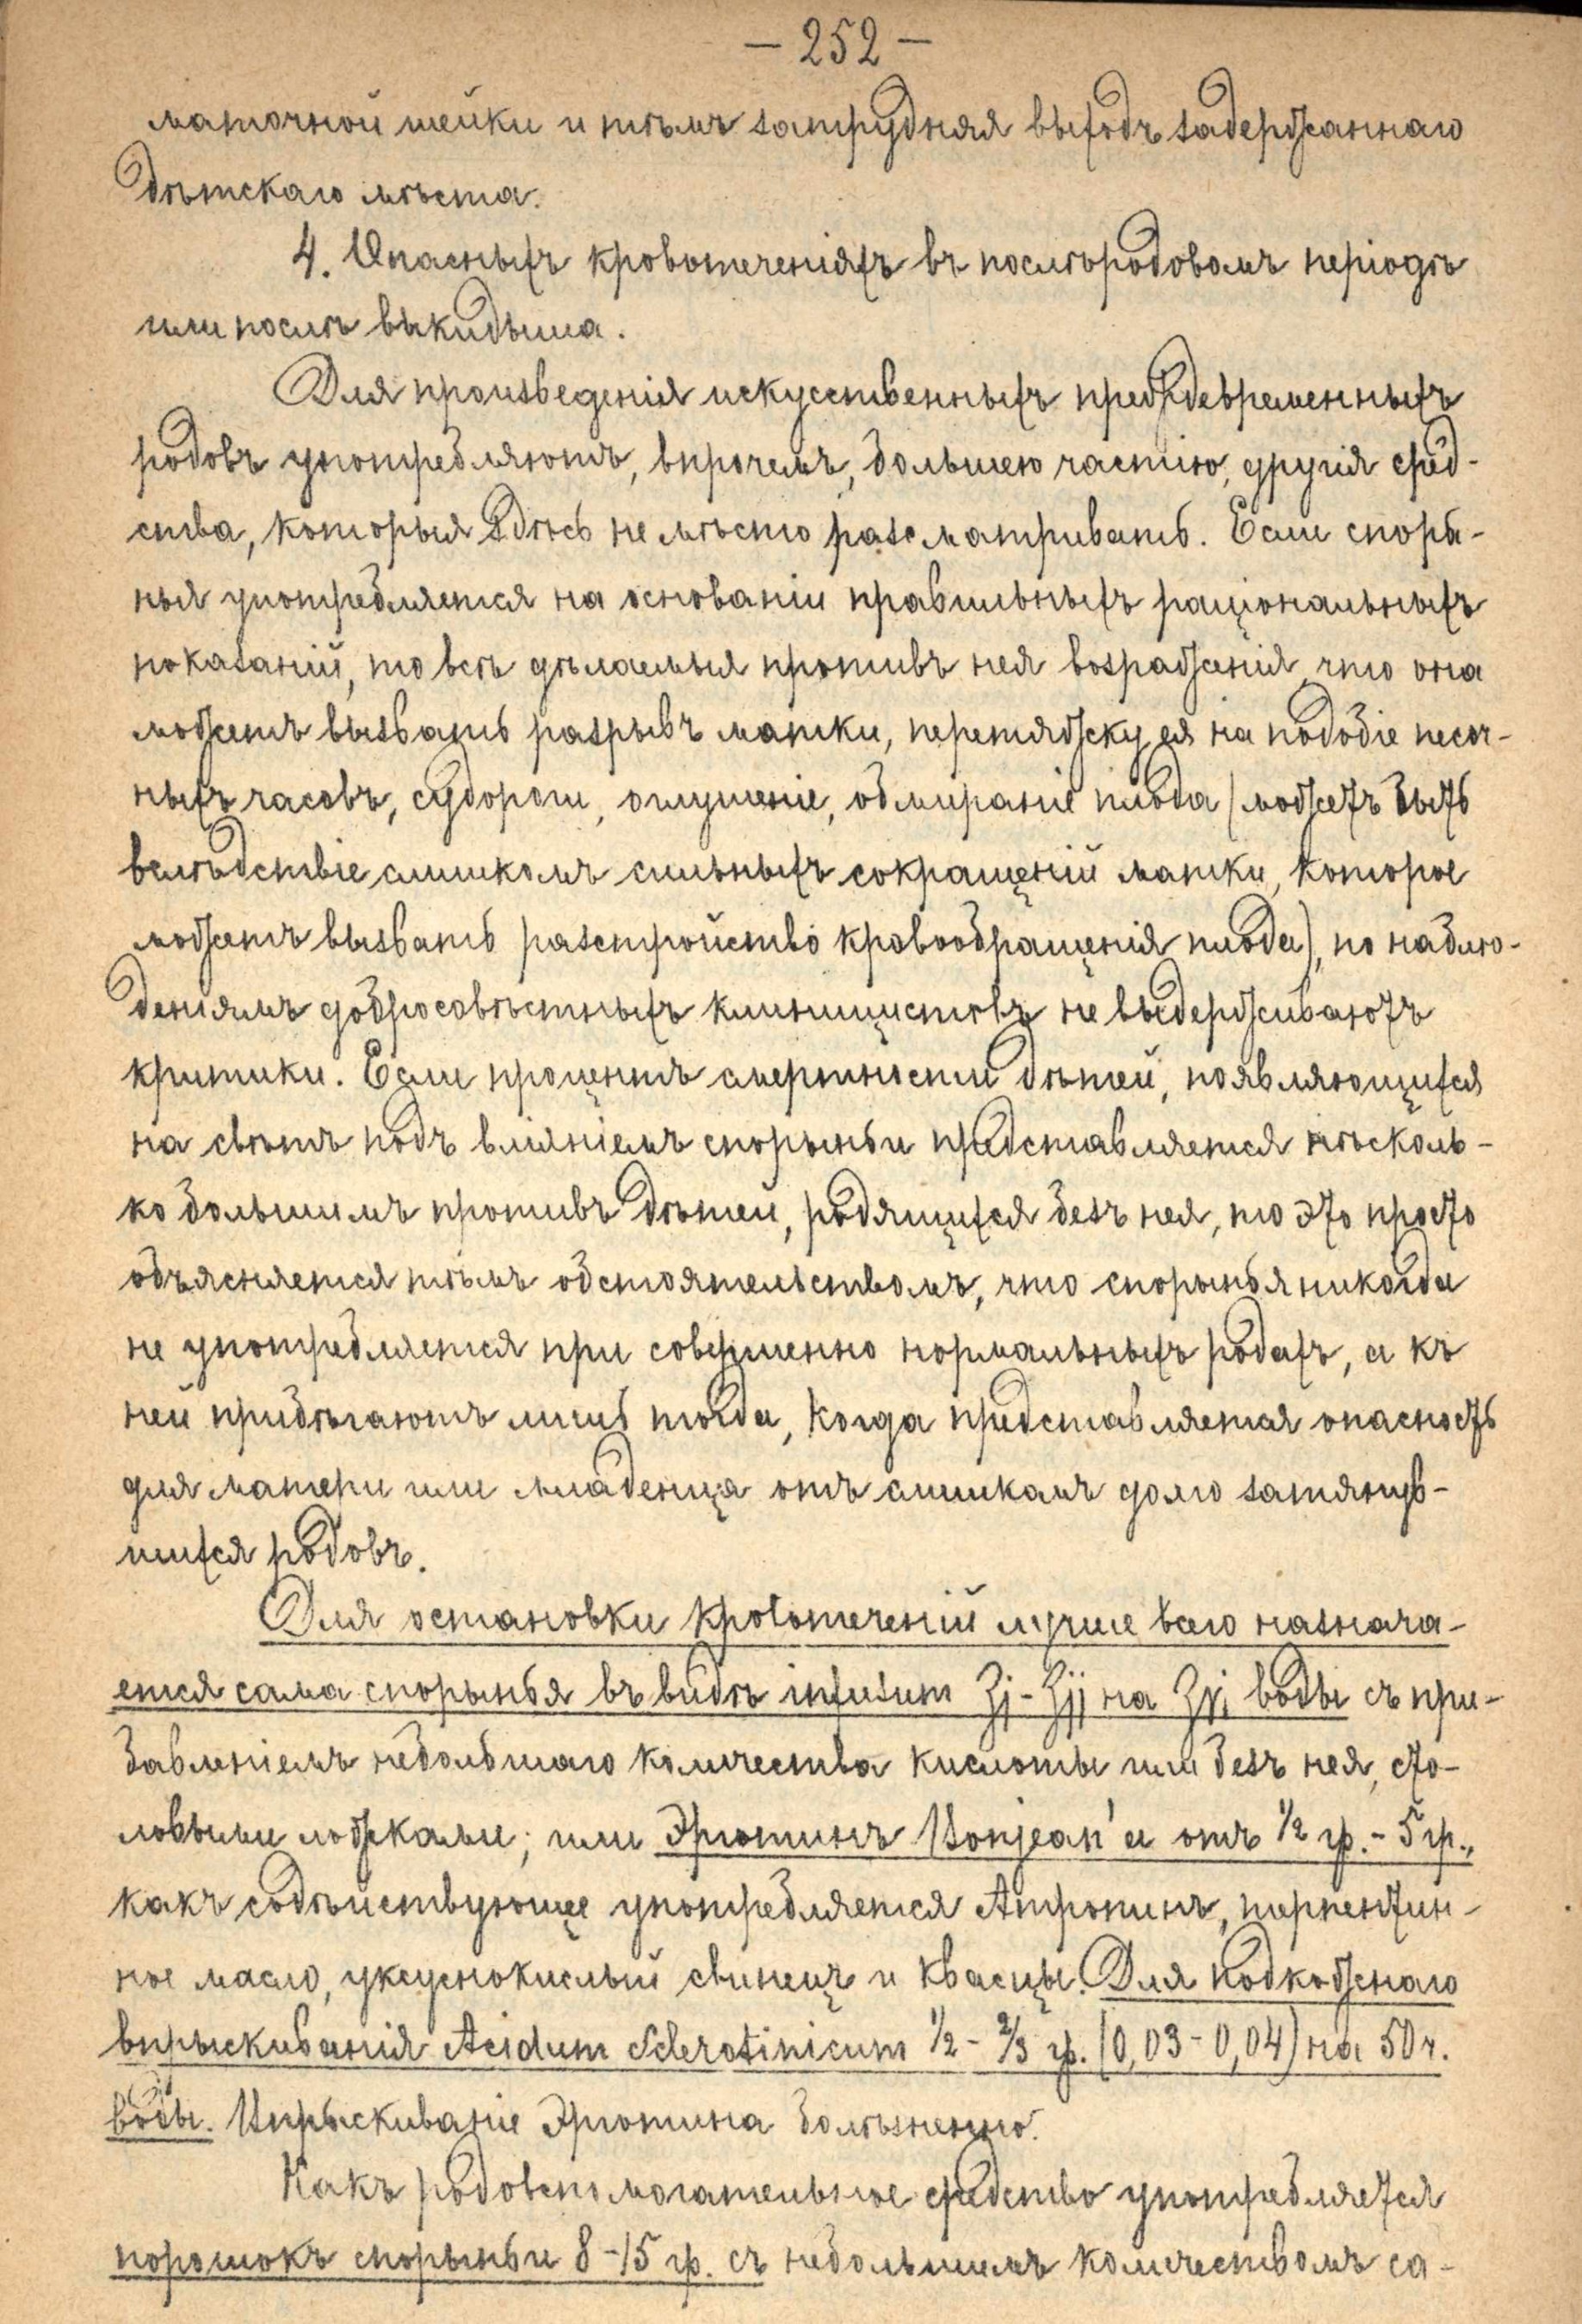 — 252 —
маточной шейки и тѣмъ затрудняя выходъ задержаннаго
дѣтскаго мѣста.
4. Опасныхъ кровотеченіяхъ въ послѣродовомъ періодѣ
или послѣ выкидыша.
Для произведенія искусственныхъ преждевременныхъ
родовъ употребляютъ, впрочемъ, большею частію, другія сред-
ства, которыя здѣсь не мѣсто разсматривать. Если споры-
нья употребляется на основаніи правильныхъ раціональныхъ
показаній, то всѣ дѣлаемыя противъ нея возраженія, что она
можетъ вызвать разрывъ матки, перетяжку ея на подобіе песоч-
ныхъ часовъ, судороги, оглушеніе, обмираніе плода (можетъ быть
вслѣдствіе слишкомъ сильныхъ сокращеній матки, которое
можетъ вызвать разстройство кровообращенія плода), по наблю-
деніямъ добросовѣстныхъ клиницистовъ не выдерживаютъ
критики. Если процентъ смертности дѣтей, появляющихся
на свѣтъ подъ вліяніемъ спорыньи представляется нѣсколь-
ко большимъ противъ дѣтей, родящихся безъ нея, то это просто
объясняется тѣмъ обстоятельствомъ, что спорынья никогда
не употребляется при совершенно нормальныхъ родахъ, а къ
ней прибѣгаютъ лишь тогда, когда представляется опасность
для матери или младенца отъ слишкамъ долго затянув-
шихся родовъ.
Для остановки кровотеченій лучше всего назнача-
ется сама спорынья въ видѣ infusum ʒj - ʒjj на ʒvj воды съ при-
бавленіемъ небольшаго количества кислоты или безъ нея, сто-
ловыми ложками; или Эрготинъ Bonjean'а отъ 1/2 гр. - 5 гр.,
какъ содѣйствующее употребляется Атропинъ, терпентин-
ное масло, уксуснокислый свинецъ и квасцы. Для подкожнаго
впрыскиванія Acidum Sclerotinicum 1/2 - 2/3 гр. (0,03 - 0,04) на 50 ч.
воды. Впрыскиваніе Эрготина болѣзненно.
Какъ родовспомогательное средство употребляется
порошокъ спорыньи 8 - 15 гр. съ небольшимъ количествомъ са-